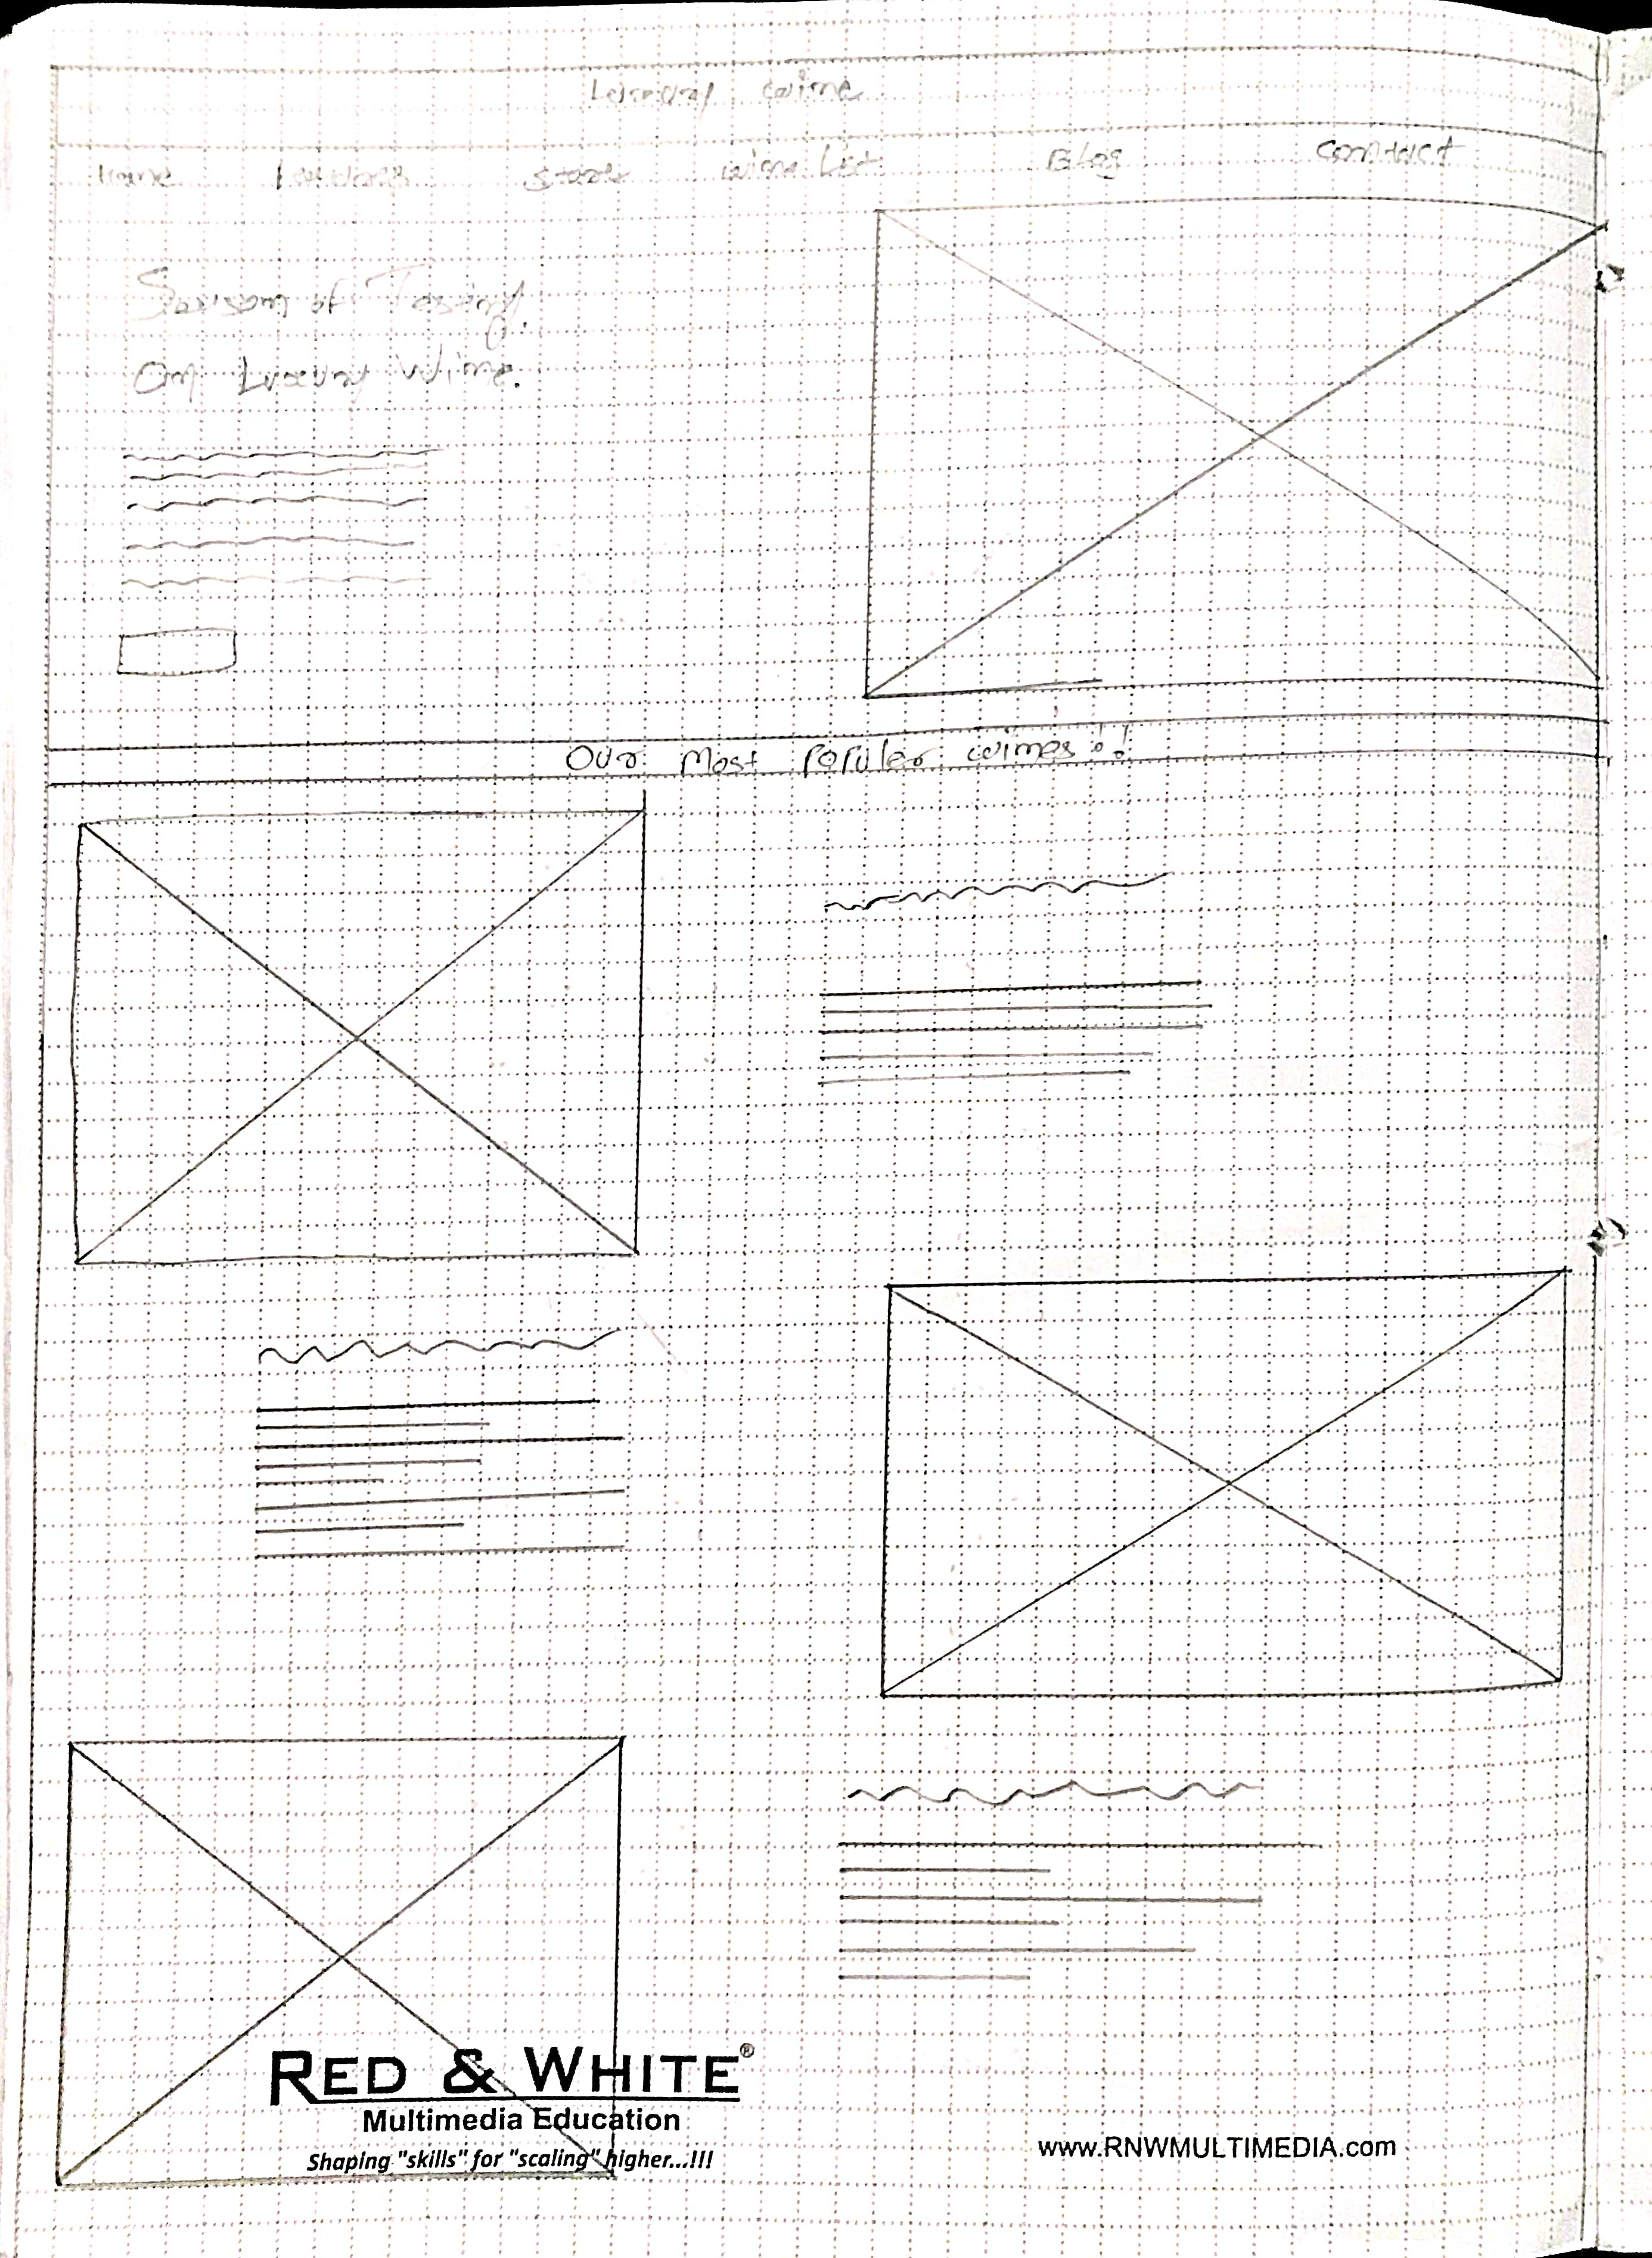 Luxury wine
Home Store wine List Blog Contact
of
On Luxury Wine.
Our Most Populer wines
RED & WHITE®
Multimedia Education
Shaping "skills" for "scaling" higher...!!!
www.RNWMULTIMEDIA.com